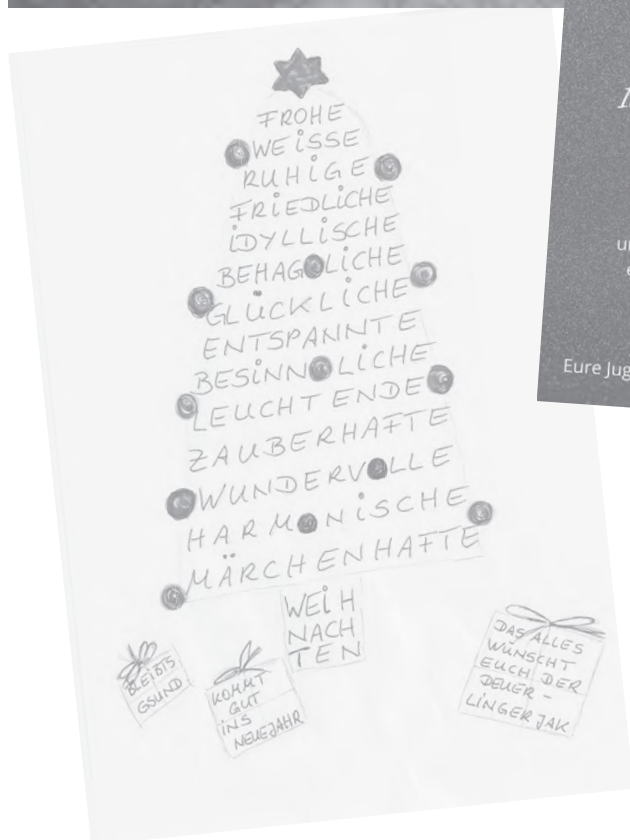 FROHE
WEiSSE
RUHiGE
FRiEDLiCHE
iDYLLiSCHE
BEHAGLiCHE
GLÜCKLiCHE
ENTSPANNTE
BESiNNLiCHE
LEUCHTENDE
ZAUBERHAFTE
WUNDERVOLLE
HARMONiSCHE
MÄRCHENHAFTE
WEiH
NACH
TEN
BLEIBTS
GSUND
KOMMT
GUT
iNS
NEUEJAHR
DAS ALLES
WÜNSCHT
EUCH DER
DEUER-
LINGER JAK
Eure